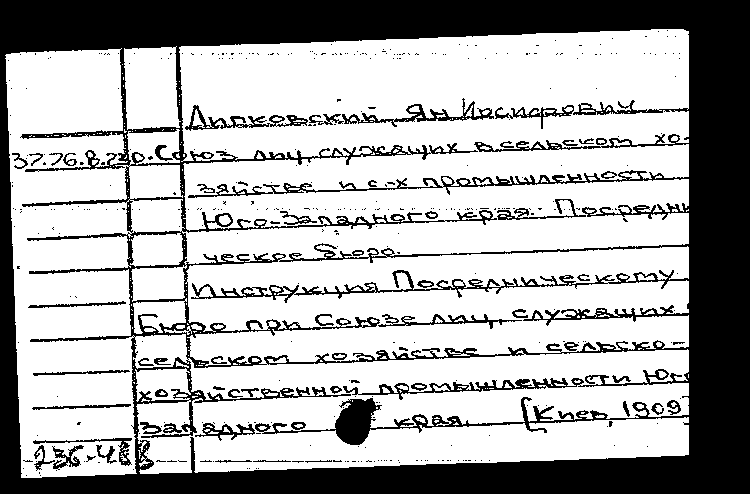 Липковский, Ян Иосифович
37.76.8.230. Союз лиц, служащих в сельском хо-
зяйстве и с-х промышленности
Юго-Западного края. Посредни
ческое бюро.
Инструкция Посредническому
Бюро при Союзе лиц, служащих
сельском хозяйстве и сельско-
хозяйственной промышленности Юго
Западного края. [Киев, 1909]
236-488